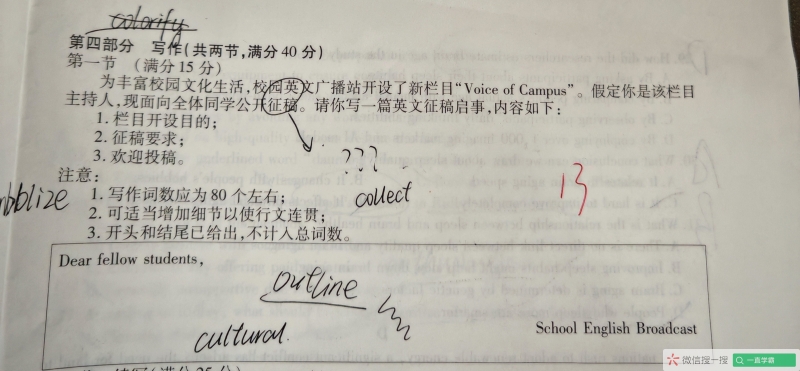 colorify
第四部分 写作(共两节,满分 40 分)
第一节 (满分 15 分)
为丰富校园文化生活,校园英文广播站开设了新栏目“Voice of Campus”。假定你是该栏目
主持人,现面向全体同学公开征稿。请你写一篇英文征稿启事,内容如下:
1. 栏目开设目的;
2. 征稿要求;
3. 欢迎投稿。
???
collect
13
注意:
1. 写作词数应为 80 个左右;
2. 可适当增加细节以使行文连贯;
3. 开头和结尾已给出,不计入总词数。
Dear fellow students,
outline
cultural.
School English Broadcast
微信搜一搜 一直学霸